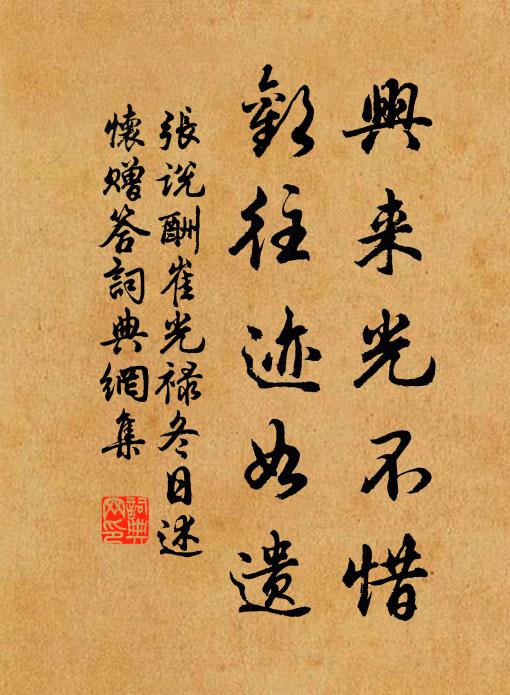 興来光不惜
歡往迹如遺
張說酬崔光禄冬日述
懷贈答詞典網集
詞典
网印